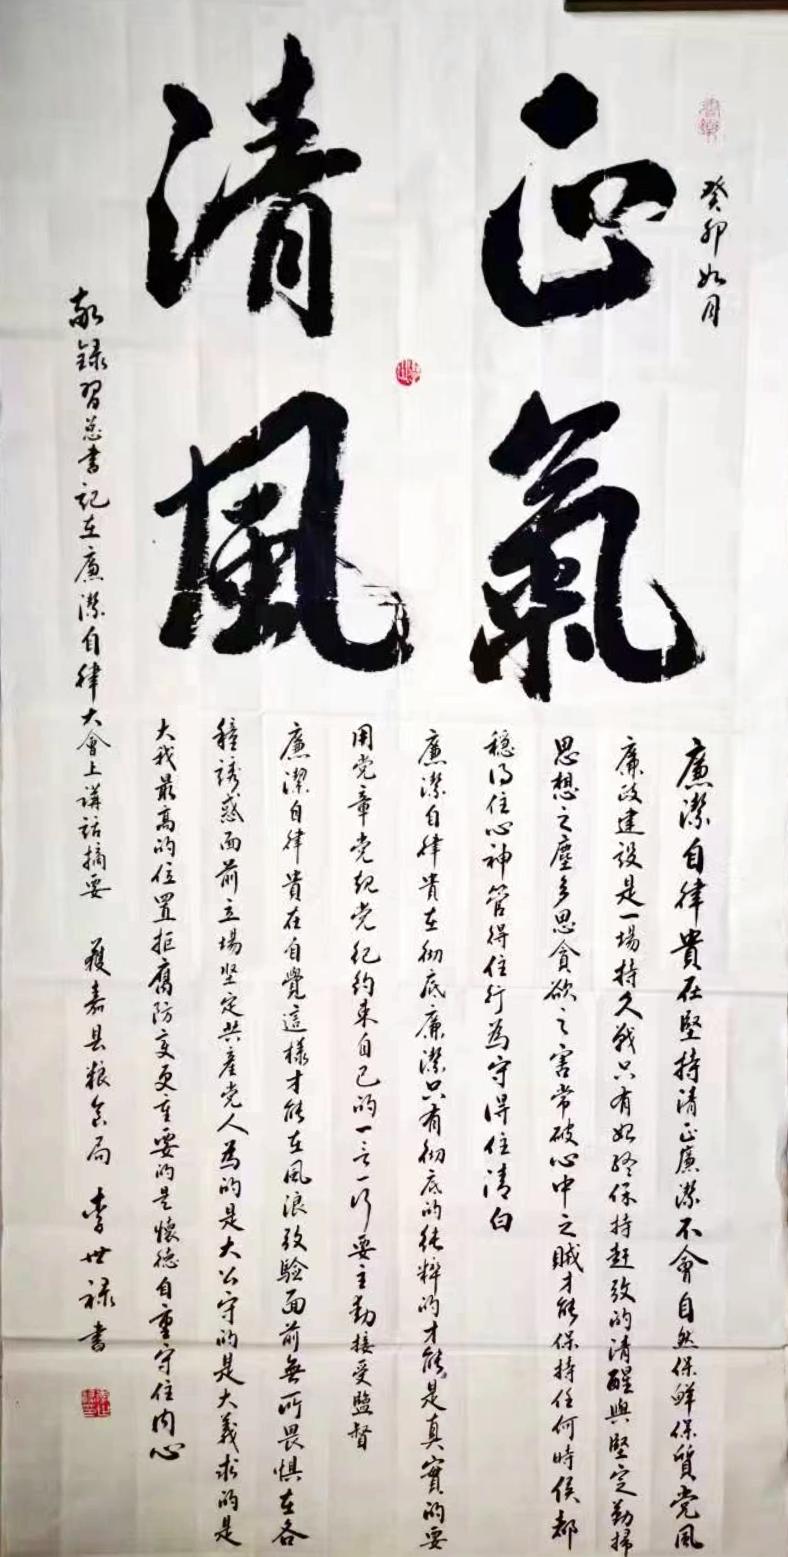 癸卯如月
正氣
清風
廉潔自律貴在堅持清正廉潔不會自然保鮮保質党風
廉政建设是一場持久戰只有始终保持赶攷的清醒與堅定勤掃
思想之塵多思貪欲之害常破心中之賊才能保持任何時侯都
穩得住心神管得住行為守得住清白
廉潔自律貴在彻底廉潔只有彻底的純粹的才能是真實的要
用党章党規党纪約束自己的一言一行要主動接受監督
廉潔自律貴在自覺這樣才能在風浪攷驗面前無所畏惧在各
種誘惑面前立場坚定共產党人為的是大公守的是大義求的是
大我最高的位置拒腐防变更重要的是懷德自重守住内心
敬録習总書記在廉潔自律大會上講話摘要 獲嘉县粮食局 李世禄書